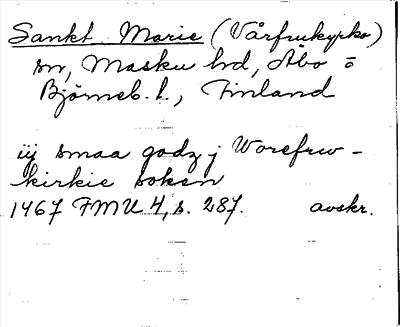 Sankt Marie (Vårfrukyrko)
sn, Masku hd, Åbo o
Björneb. l., Finland
iij smaa godz j Worefrw-
kirkie soken
1467 FMU 4, s. 287. avskr.